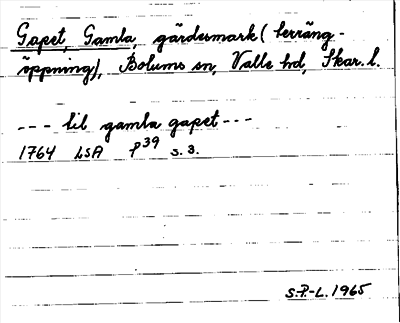 Gapet, Gamla, gärdesmark (terräng-
öppning), Bolums sn, Valle hd, Skar. l.
--- til gamla gapet ---
1764 LSA P39 s. 3.
S.P-L. 1965